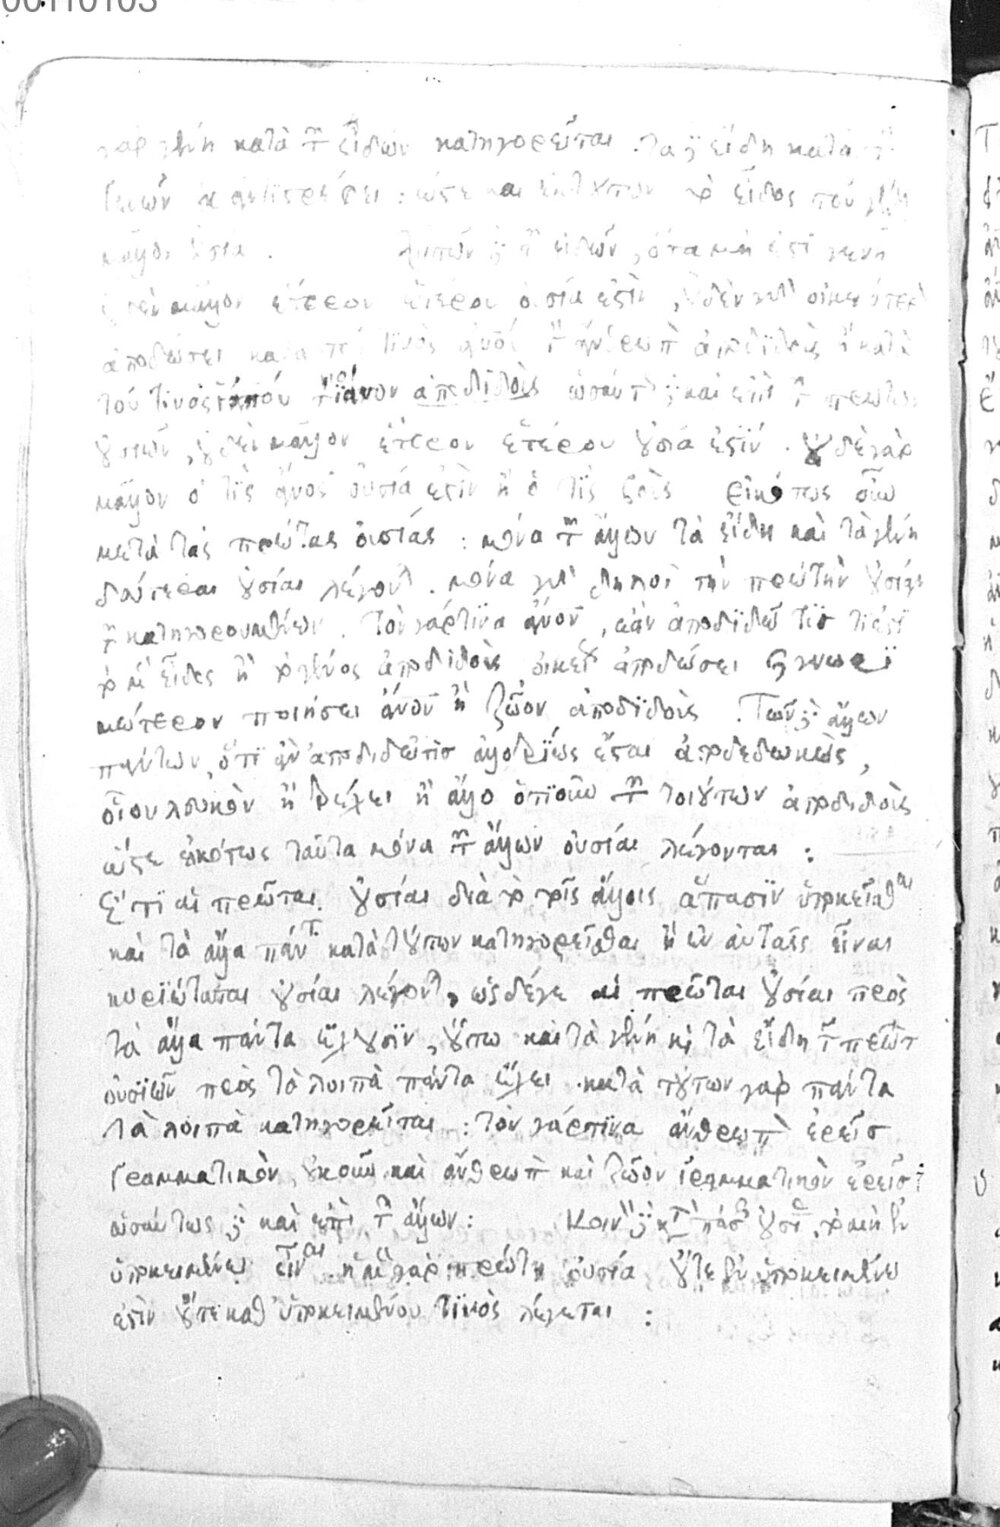 γὰρ γένη κατὰ τῶν εἰδῶν κατηγορεῖται. τὰ δὲ εἴδη κατὰ τῶν
γενῶν οὐκ ἀντιστρέφει: ὥστε καὶ ἐκ τούτων τὸ εἶδος τοῦ γένους
μᾶλλον οὐσία. αὐτῶν δὲ τῶν εἰδῶν, ὅσα μή ἐστι γένη
οὐδὲν μᾶλλον ἕτερον ἑτέρου οὐσία ἐστίν, οὐδὲν γὰρ οἰκειότερον
ἀποδώσει κατὰ τοῦ τινὸς ἀνοῦ τὸν ἄνθρωπον ἀποδιδοὺς ἢ κατὰ
τοῦ τινὸς ἵππου τὸν ἵππον ἀποδιδοὺς ὡσαύτως δὲ καὶ ἐπὶ τῶν πρώτων
οὐσιῶν, οὐδὲν μᾶλλον ἕτερον ἑτέρου οὐσία ἐστίν. οὐδὲ γὰρ
μᾶλλον ὁ τὶς ἄνος οὐσία ἐστὶν ἢ ὁ τὶς βοῦς εἰκότως οὖν
μετὰ τὰς πρώτας οὐσίας: μόνα τῶν ἄλλων τὰ εἴδη καὶ τὰ γένη
δεύτεραι οὐσίαι λέγονται. μόνα γὰρ δηλοῖ τὴν πρώτην οὐσίαν
τῶν κατηγορουμένων. τὸν γάρ τινα ἄνον, ἐὰν ἀποδιδῶ τὶς τί ἐστι
τὸ μὲν εἶδος ἢ τὸ γένος ἀποδιδοὺς οἰκείως ἀποδώσει καὶ γνωρι
μώτερον ποιήσει ἄνον ἢ ζῶον ἀποδιδούς. Τῶν δὲ ἄλλων
πάντων, ὅτι ἂν ἀποδιδῶ τὶς ἀλλοτρίως ἔσται ἀποδεδωκώς,
οἷον λευκὸν ἢ τρέχει ἢ ἄλλο ὁτιοῦν τῶν τοιούτων ἀποδιδοὺς
ὥστε εἰκότως ταῦτα μόνα τῶν ἄλλων οὐσίαι λέγονται:
Ἔτι αἱ πρῶται οὐσίαι διὰ τὸ τοῖς ἄλλοις ἅπασιν ὑποκεῖσθαι
καὶ τὰ ἄλλα πάντα κατὰ τούτων κατηγορεῖσθαι ἢ ἐν αὐταῖς εἶναι
κυριώταται οὐσίαι λέγονται, ὡς δέγε αἱ πρῶται οὐσίαι πρὸς
τὰ ἄλλα πάντα ἔχουσιν, οὕτω καὶ τὰ γένη καὶ τὰ εἴδη τῶν πρώτων
οὐσιῶν πρὸς τὰ λοιπὰ πάντα ἔχει. κατὰ τούτων γὰρ πάντα
τὰ λοιπὰ κατηγορεῖται: τὸν γάρ τινα ἄνθρωπον ἐρεῖς
γραμματικὸν, οὐκοῦν καὶ ἄνθρωπον καὶ ζῶον γραμματικὸν ἐρεῖς:
ὡσαύτως δὲ καὶ ἐπὶ τῶν ἄλλων: Κοινὸν δὲ κατὰ πάσης οὐσίας τὸ μὴ ἐν
ὑποκειμένω εἶναι ἡ μὲν γὰρ πρώτη οὐσία οὔτε ἐν ὑποκειμένω
ἐστὶν οὔτε καθ ὑποκειμένου τινὸς λέγεται: